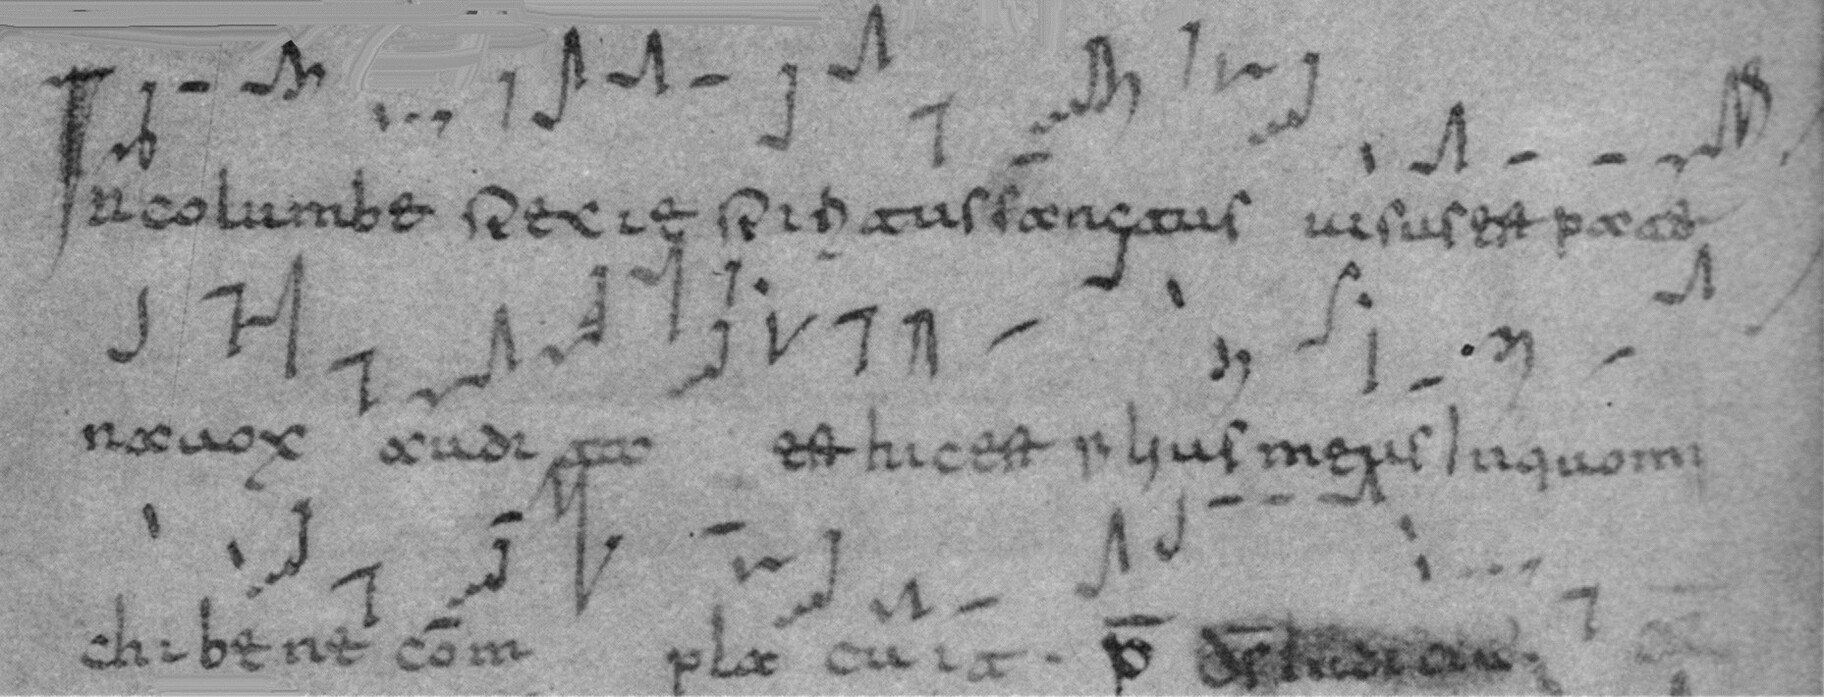 In columbe specie sps̄ sanctus uisus est pater
na uox audita est hic est filius meus In quo mi
chi bene com placuit. p̄